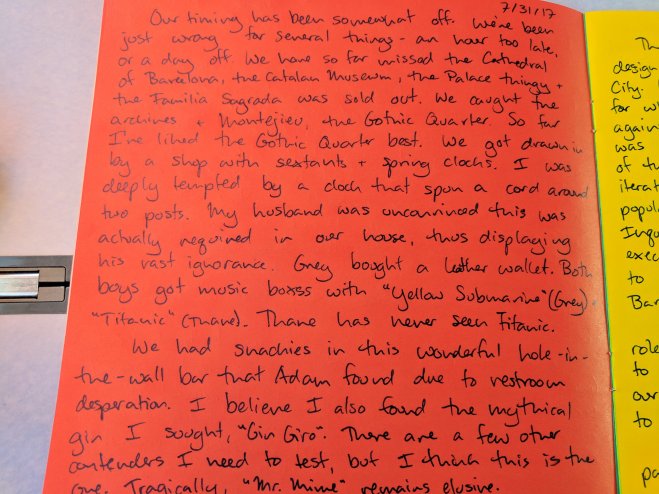 7/31/17
Our timing has been somewhat off. We've been
just wrong for several things - an hour too late,
or a day off. We have so far missed the Cathedral
of Barcelona, the Catalan Museum, the Palace thingy +
the Familia Sagrada was sold out. We caught the
archives + Montejieu, the Gothic Quarter. So far
I've liked the Gothic Quarter best. We got drawn in
by a shop with sextants + spring clocks. I was
deeply tempted by a clock that spun a cord around
two posts. My husband was unconvinced this was
actually required in our house, thus displaying
his vast ignorance. Grey bought a leather wallet. Both
boys got music boxes with "Yellow Submarine" (Grey) +
"Titanic" (Thane). Thane has never seen Titanic.
We had snackies in this wonderful hole-in-
the-wall bar that Adam found due to restroom
desperation. I believe I also found the mythical
gin I sought, "Gin Giro". There are a few other
contenders I need to test, but I think this is the
one. Tragically, "Mr. Mime" remains elusive.
Th
design
City.
for w
again
was
of th
iterat
popul
Inqu
exec
to
Bar
role
to
our
to
pa